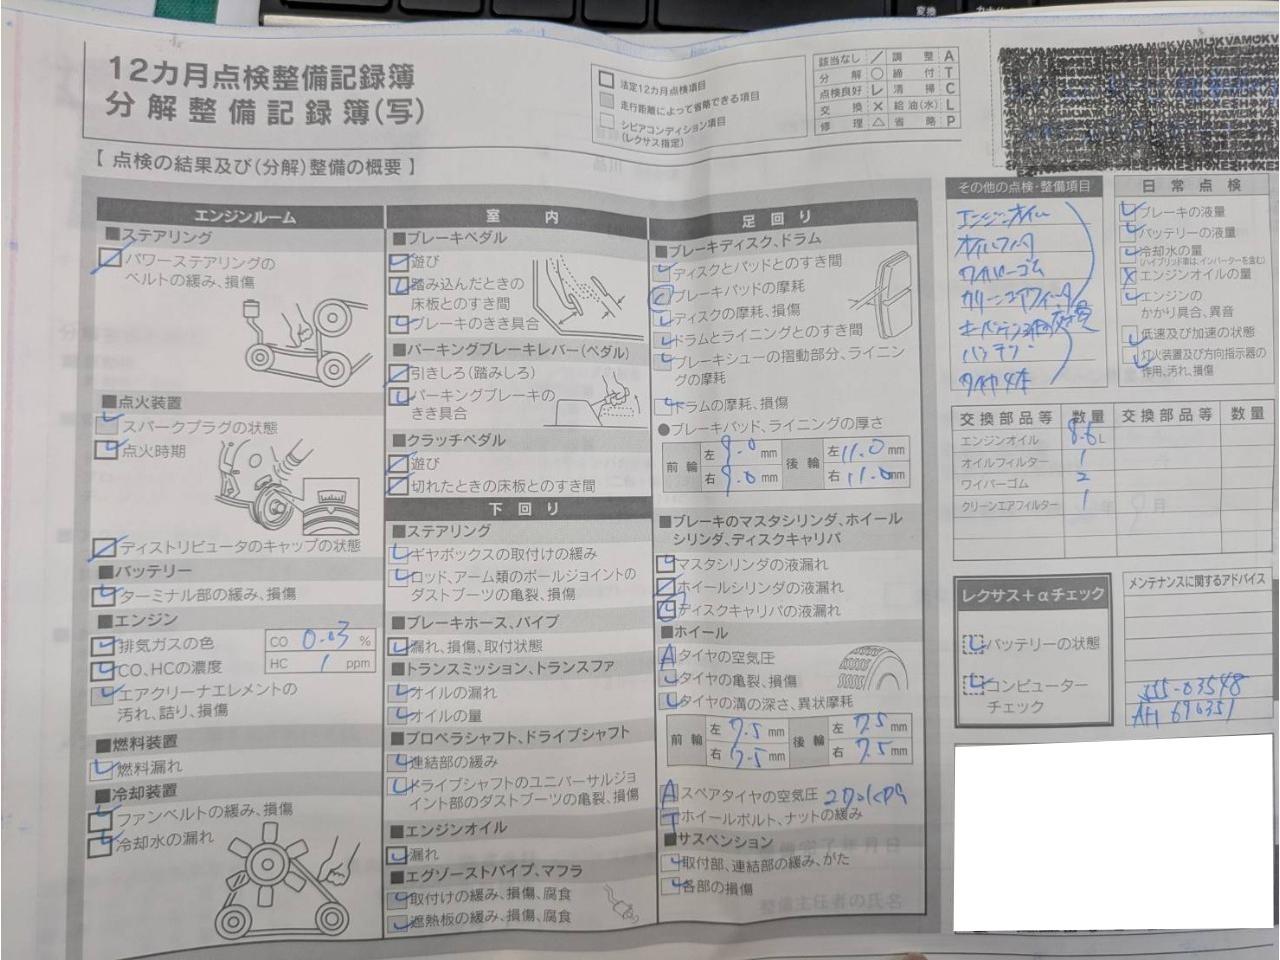 変換
12カ月点検整備記録簿
分解整備記録簿(写)
法定12カ月点検項目
走行距離によって省略できる項目
シビアコンディション項目
(レクサス指定)
該当なし / 調整 A
分解 ○ 締付 T
点検良好 レ 清掃 C
交換 × 給油(水) L
修理 △ 省略 P
【 点検の結果及び(分解)整備の概要 】
エンジンルーム
■ステアリング
パワーステアリングの
ベルトの緩み、損傷
■点火装置
スパークプラグの状態
点火時期
ディストリビュータのキャップの状態
■バッテリー
ターミナル部の緩み、損傷
■エンジン
排気ガスの色
CO、HCの濃度
CO 0.03 %
HC 1 ppm
エアクリーナエレメントの
汚れ、詰り、損傷
■燃料装置
燃料漏れ
■冷却装置
ファンベルトの緩み、損傷
冷却水の漏れ
室内
■ブレーキペダル
遊び
踏み込んだときの
床板とのすき間
ブレーキのきき具合
■パーキングブレーキレバー(ペダル)
引きしろ(踏みしろ)
パーキングブレーキの
きき具合
■クラッチペダル
遊び
切れたときの床板とのすき間
下回り
■ステアリング
ギヤボックスの取付けの緩み
ロッド、アーム類のボールジョイントの
ダストブーツの亀裂、損傷
■ブレーキホース、パイプ
漏れ、損傷、取付状態
■トランスミッション、トランスファ
オイルの漏れ
オイルの量
■プロペラシャフト、ドライブシャフト
連結部の緩み
ドライブシャフトのユニバーサルジョ
イント部のダストブーツの亀裂、損傷
■エンジンオイル
漏れ
■エグゾーストパイプ、マフラ
取付けの緩み、損傷、腐食
遮熱板の緩み、損傷、腐食
足回り
■ブレーキディスク、ドラム
ディスクとパッドとのすき間
ブレーキパッドの摩耗
ディスクの摩耗、損傷
ドラムとライニングとのすき間
ブレーキシューの摺動部分、ライニン
グの摩耗
ドラムの摩耗、損傷
●ブレーキパッド、ライニングの厚さ
前輪 左 9.0 mm 後輪 左 11.0 mm
右 9.0 mm 右 11.0 mm
■ブレーキのマスタシリンダ、ホイール
シリンダ、ディスクキャリパ
マスタシリンダの液漏れ
ホイールシリンダの液漏れ
ディスクキャリパの液漏れ
■ホイール
A タイヤの空気圧
タイヤの亀裂、損傷
タイヤの溝の深さ、異状摩耗
前輪 左 7.5 mm 後輪 左 7.5 mm
右 7.5 mm 右 7.5 mm
A スペアタイヤの空気圧
T ホイールボルト、ナットの緩み
■サスペンション
取付部、連結部の緩み、がた
各部の損傷
その他の点検・整備項目
エンジンオイル
オイルフィルタ
ワイパーゴム
クリーンエアフィルタ
バッテリー
タイヤ4本
日常点検
ブレーキの液量
バッテリーの液量
冷却水の量
(ハイブリッド車は、インバーターを含む)
エンジンオイルの量
エンジンの
かかり具合、異音
低速及び加速の状態
灯火装置及び方向指示器の
作用、汚れ、損傷
交換部品等 数量 交換部品等 数量
エンジンオイル 8.6L
オイルフィルター 1
ワイパーゴム 2
クリーンエアフィルター 1
レクサス+αチェック
バッテリーの状態
コンピューター
チェック
メンテナンスに関するアドバイス
AH 696351
整備主任者の氏名